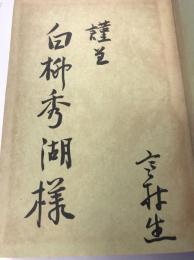 謹呈
白柳秀湖様